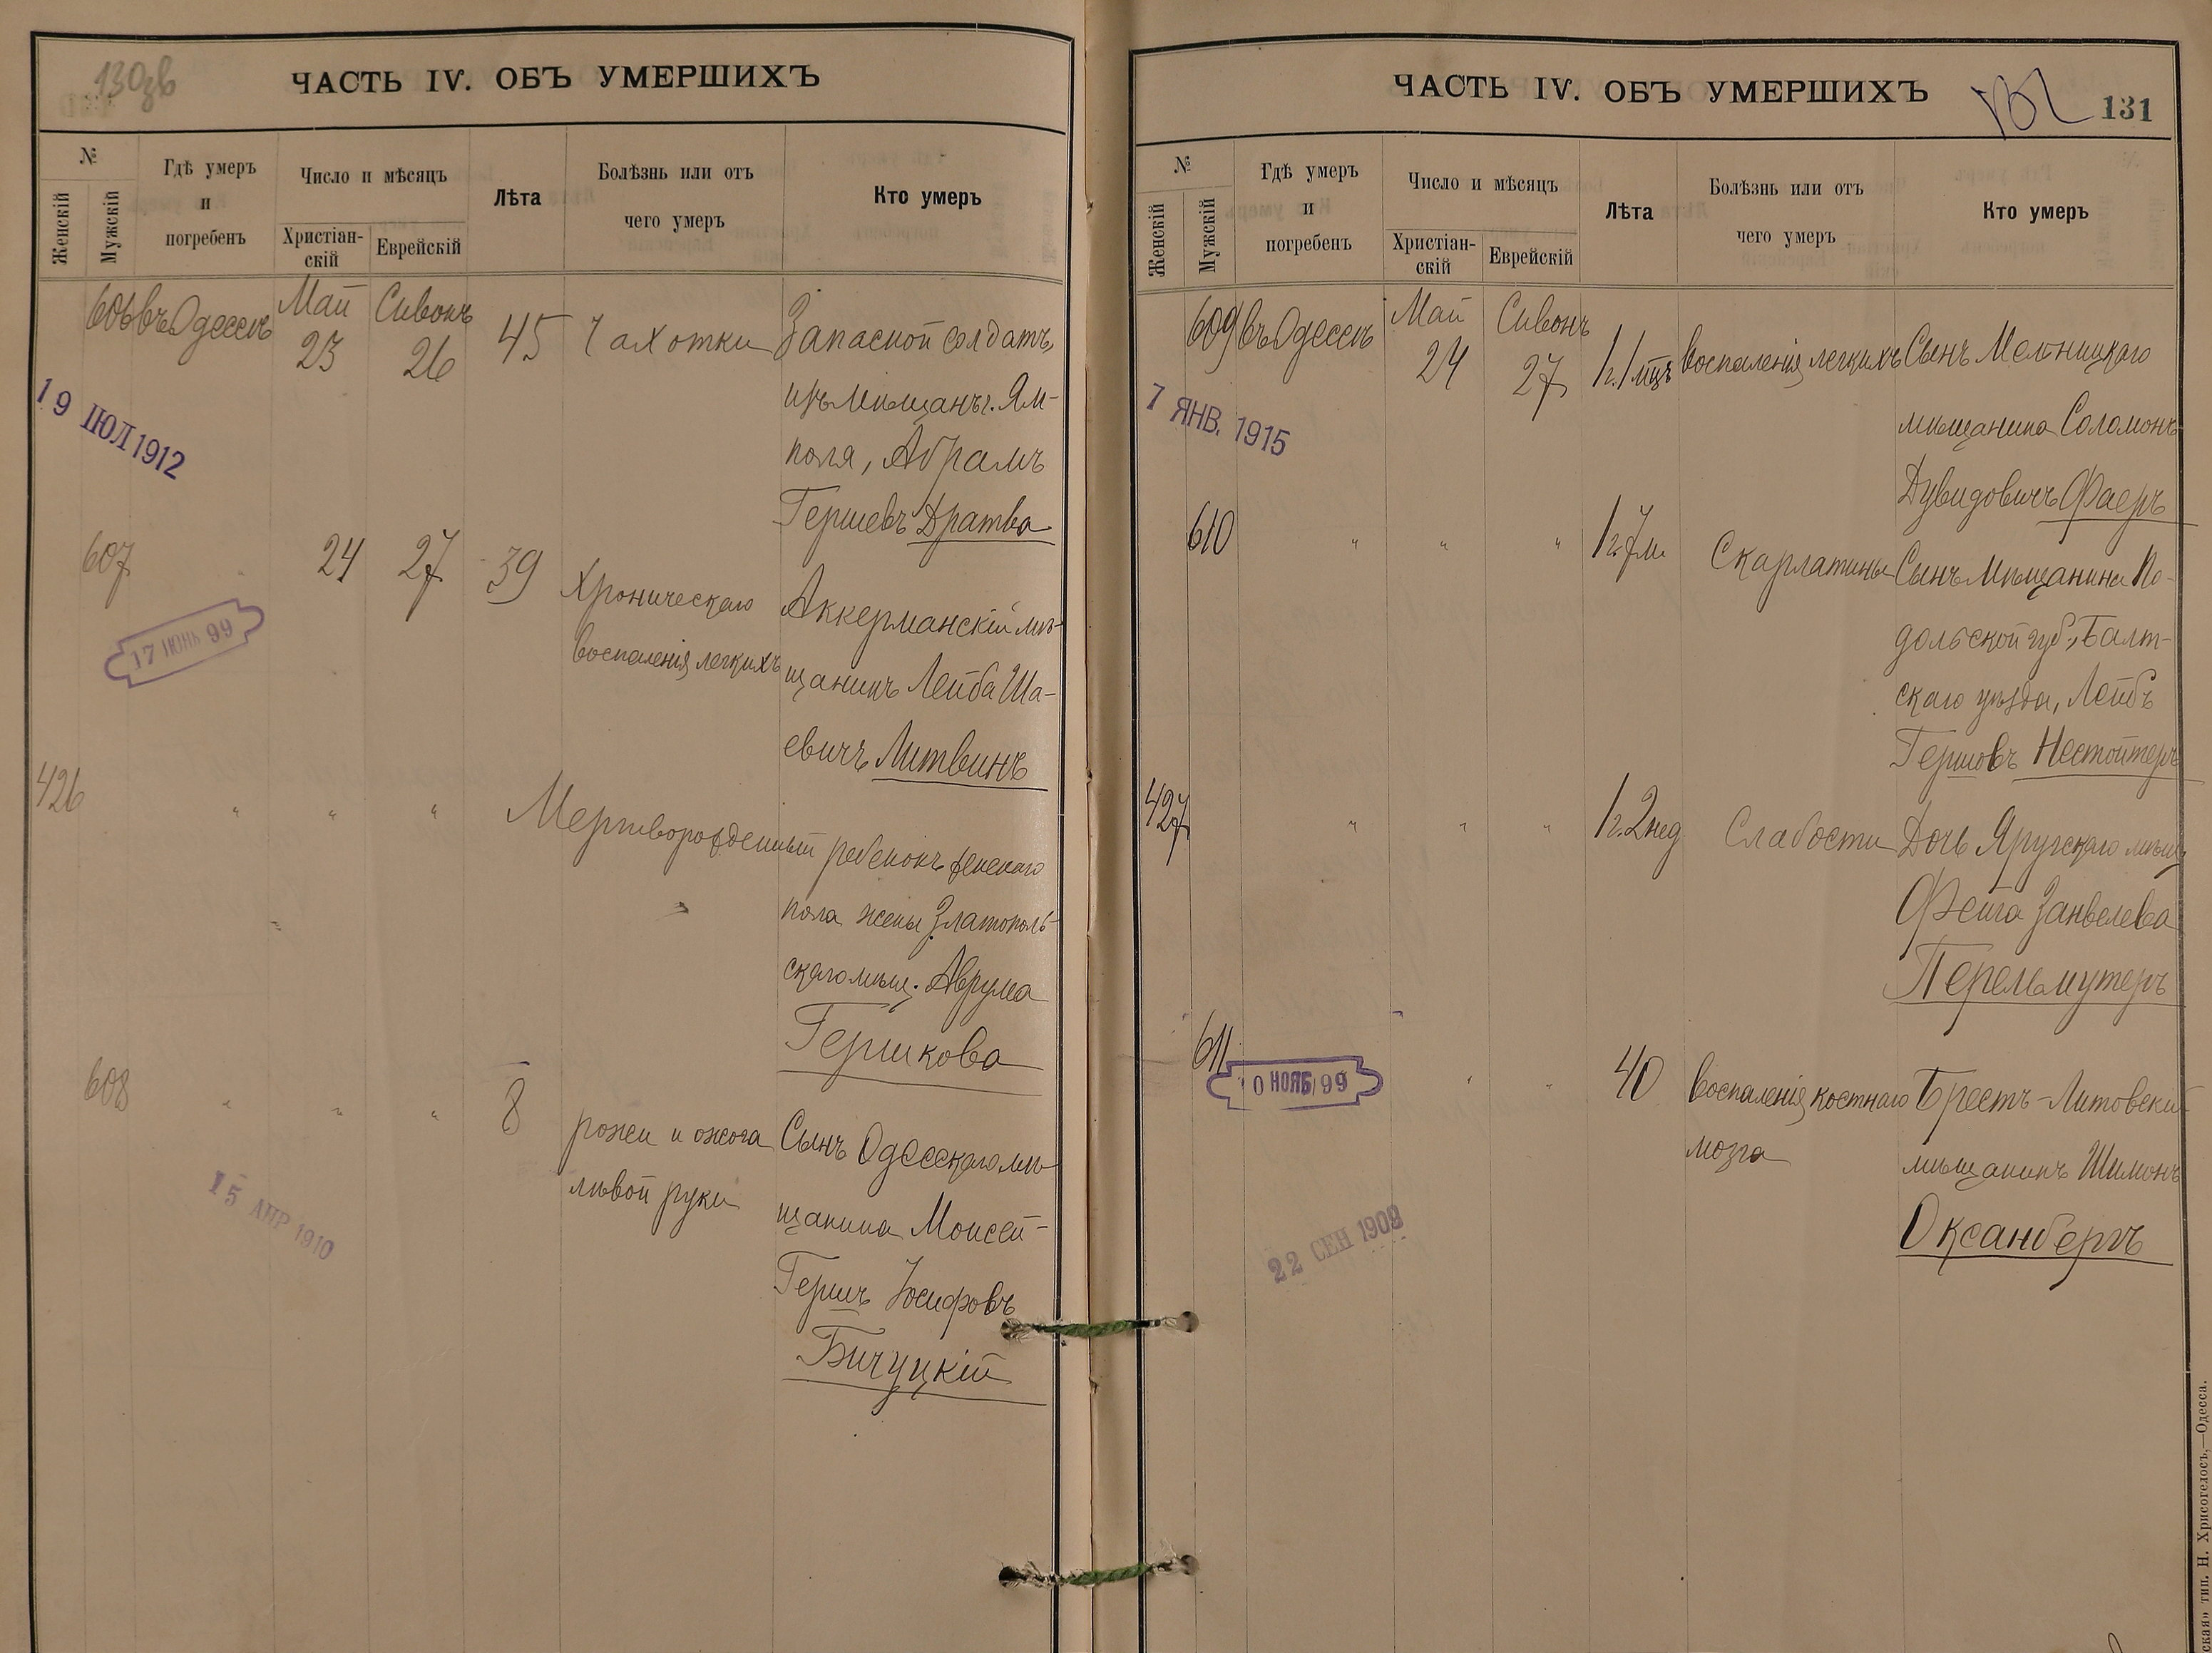 130зв
ЧАСТЬ IV. ОБЪ УМЕРШИХЪ
№
Женскій
Мужскій
Гдѣ умеръ
и
погребенъ
Число и мѣсяцъ
Христіан-
скій
Еврейскій
Лѣта
Болѣзнь или отъ
чего умеръ
Кто умеръ
606 въ Одессѣ Май Сивонъ
23 26 45 Чахотки Запасной солдатъ,
изъ мѣщанъ г. Ям-
поля, Абрамъ
Гершевъ Дратва
19 ІЮЛ 1912
607 " 24 27 39 Хроническаго
воспаленія легкихъ
Аккерманскій мѣ-
щанинъ Лейба Ша-
евичъ Литвинъ
17 ІЮНЬ 99
426 " " " Мертворожденный ребенокъ женскаго
пола жены Златополь-
скаго мѣщ. Аврума
Гершкова
608 " " " 8 рожи и ожога
лѣвой руки
Сынъ Одесскаго мѣ-
щанина Моисей-
Гершъ Іосифовъ
Бичуцкій
15 АПР 1910
ЧАСТЬ IV. ОБЪ УМЕРШИХЪ
131
№
Женскій
Мужскій
Гдѣ умеръ
и
погребенъ
Число и мѣсяцъ
Христіан-
скій
Еврейскій
Лѣта
Болѣзнь или отъ
чего умеръ
Кто умеръ
609 въ Одессѣ Май Сивонъ
24 27 1г. 1 мцъ воспаленія легкихъ Сынъ Мельницкаго
мѣщанина Соломонъ
Дувидовичъ Фаеръ
7 ЯНВ. 1915
610 " " " 1г. 7м. Скарлатины Сынъ мѣщанина По-
дольской губ., Балт-
скаго уѣзда, Лейбъ
Гершовъ Нестойтеръ
427 " " " 1г. 2 нед Слабости Дочь Яругскаго мѣщ.
Фейга Занвелева
Перельмутеръ
611 " " 40 воспаленія костнаго
мозга
Брестъ-Литовскій
мѣщанинъ Шимонъ
Оксанбергъ
0 НОЯБ 99
22 СЕН 1909
ская» тип. Н. Хрисогелосъ,—Одесса.